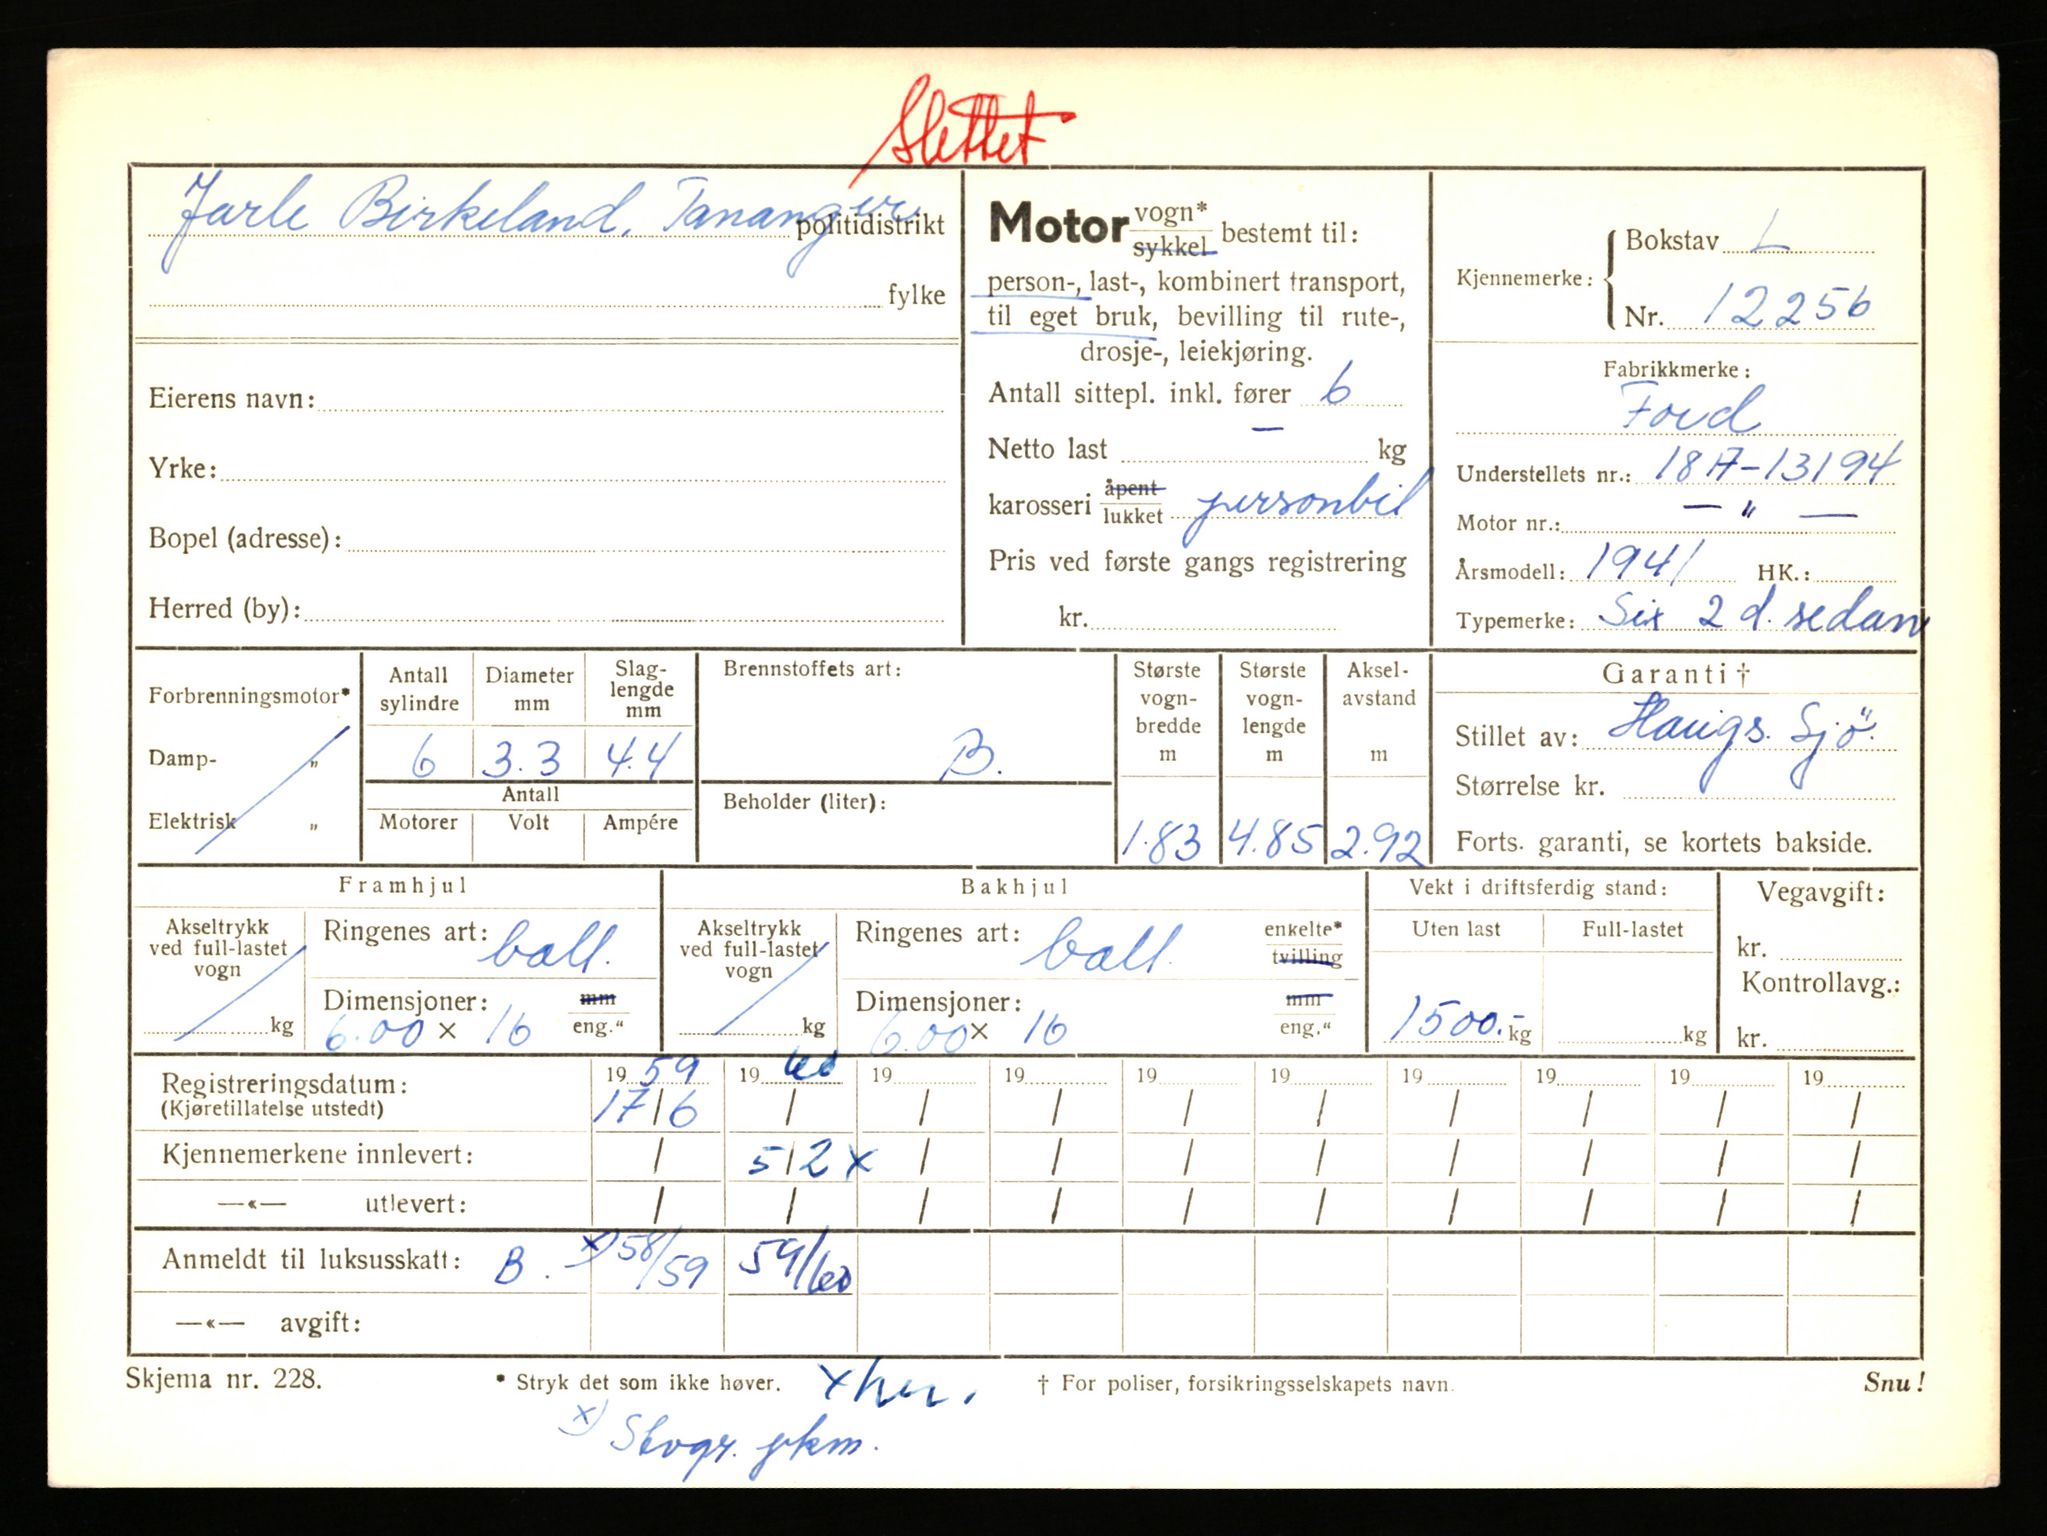 Slettet
Jarle Birkeland, Tananger politidistrikt
fylke
Eierens navn:
Yrke:
Bopel (adresse):
Herred (by):
Motor vogn* sykkel bestemt til:
person-, last-, kombinert transport,
til eget bruk, bevilling til rute-,
drosje-, leiekjøring.
Antall sittepl. inkl. fører 6
Netto last — kg
karosseri åpent lukket personbil
Pris ved første gangs registrering
kr.
Kjennemerke: Bokstav L
Nr. 12256
Fabrikkmerke:
Ford
Understellets nr.: 18A-13194
Motor nr.: — " —
Årsmodell: 1941 HK.:
Typemerke: Six 2 d. sedan
Forbrenningsmotor*
Damp- „
Elektrisk „
Antall sylindre Diameter mm Slag-lengde mm
6 3.3 4.4
Antall
Motorer Volt Ampére
Brennstoffets art:
B.
Beholder (liter):
Største vogn-bredde m Største vogn-lengde m Aksel-avstand m
1.83 4.85 2.92
Garanti †
Stillet av: Haugs. Sjö.
Størrelse kr.
Forts. garanti, se kortets bakside.
Framhjul
Akseltrykk ved full-lastet vogn kg
Ringenes art: ball.
Dimensjoner: mm
6.00 × 16 eng."
Bakhjul
Akseltrykk ved full-lastet vogn kg
Ringenes art: ball. enkelte* tvilling
Dimensjoner: mm
6.00 × 16 eng."
Vekt i driftsferdig stand:
Uten last Full-lastet
1500.- kg kg
Vegavgift:
kr.
Kontrollavg.:
kr.
Registreringsdatum: 19 59 19 60 19 19 19 19 19 19 19 19
(Kjøretillatelse utstedt) 17/6 / / / / / / / / /
Kjennemerkene innlevert: / 5/2 x / / / / / / / /
—«— utlevert: / / / / / / / / / /
Anmeldt til luksusskatt: B. x) 58/59 59/60
—«— avgift:
Skjema nr. 228. * Stryk det som ikke høver. x her. † For poliser, forsikringsselskapets navn. Snu!
x) Stvgr. pkm.